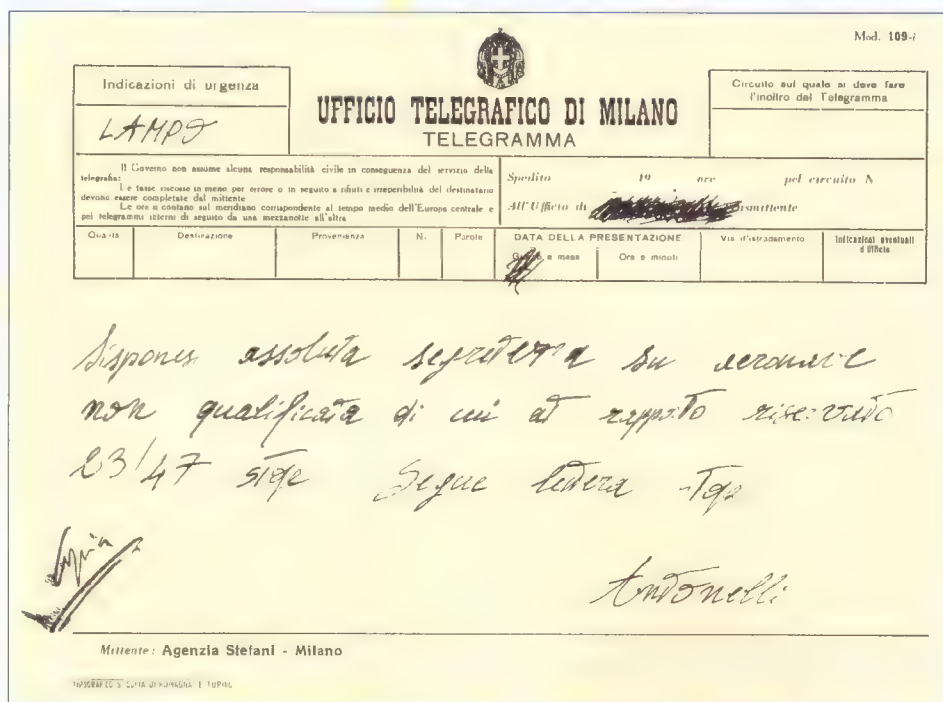 Mod. 109-i
Indicazioni di urgenza
LAMPO
UFFICIO TELEGRAFICO DI MILANO
TELEGRAMMA
Circuito sul quale si deve fare
l'inoltro del Telegramma
Il Governo non assume alcuna responsabilità civile in conseguenza del servizio della
telegrafia:
Le tasse riscosse in meno per errore o in seguito a rifiuti e irreperibilità del destinatario
devono essere completate dal mittente
Le ore si contano sul meridiano corrispondente al tempo medio dell'Europa centrale e
pei telegrammi interni di seguito da una mezzanotte all'altra
Spedito 19 ore pel circuito N
All'Ufficio di
Qualità Destinazione Provenienza N. Parole DATA DELLA PRESENTAZIONE Via d'istradamento Indicazioni eventuali
d'Ufficio
e mese Ore e minuti
assoluta segretezza su aeronave
non qualificata di cui at rapporto riservato
23/47 stop Segue lettera
Andonelli
Mittente: Agenzia Stefani - Milano